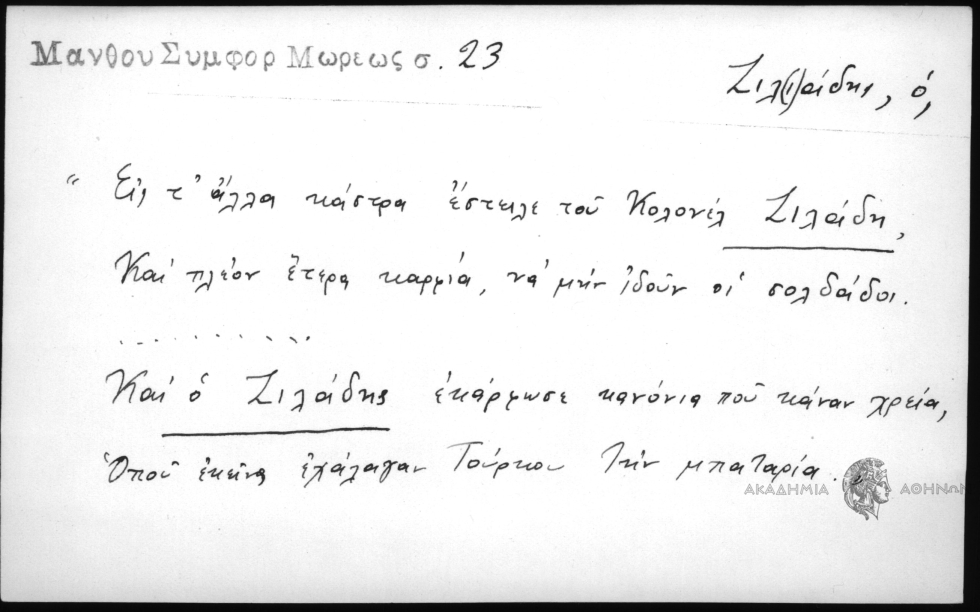 Μανθου Συμφορ Μωρεως σ. 23
Ζιλ(ι)άδης, ὁ,
“ Εἰς τ' ἄλλα κάστρα ἔστειλε τοῦ Κολονέλ Ζιλάδη,
Καί πλέον ἕτερα καμμία, νά μήν ἰδοῦν οἱ σολδάδοι.
..........
Καί ὁ Ζιλάδης ἐκάρφωσε κανόνια ποῦ κάναν χρεία,
Ὁποῦ ἐκεῖνα ἐχάλαγαν Τούρκου τήν μπαταρία.
ΑΚΑΔΗΜΙΑ ΑΘΗΝΩΝ